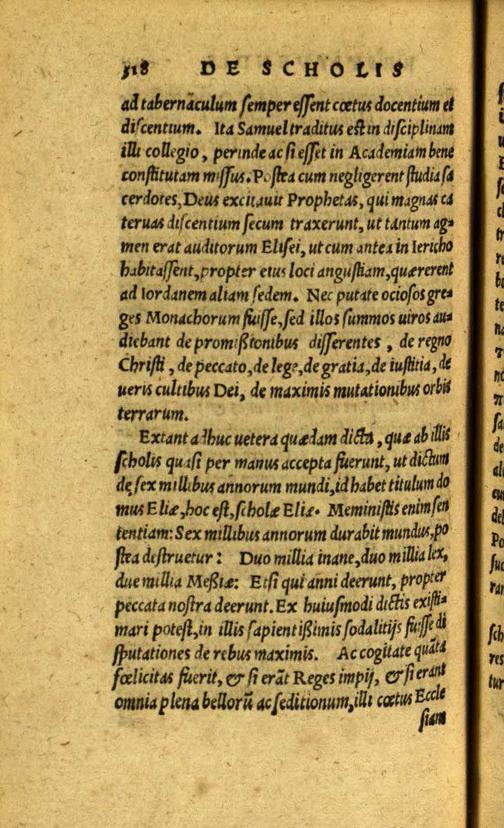 318 DE SCHOLIS
ad tabernaculum semper essent cœtus docentium et
discentium. Ita Samuel traditus est in disciplinam
illi collegio, perinde ac si esset in Academiam bene
constitutam missus. Postea cum negligerent studia sa
cerdotes, Deus excitauit Prophetas, qui magnas ca
teruas discentium secum traxerunt, ut tantum ag-
men erat auditorum Elisei, ut cum antea in Iericho
habitassent, propter eius loci angustiam, quærerent
ad Iordanem aliam sedem. Nec putate ociosos gre-
ges Monachorum fuisse, sed illos summos uiros au-
diebant de promißionibus disserentes, de regno
Christi, de peccato, de lege, de gratia, de iustitia, de
ueris cultibus Dei, de maximis mutationibus orbis
terrarum.
Extant adhuc uetera quædam dicta, quæ ab illis
scholis quasi per manus accepta fuerunt, ut dictum
de sex millibus annorum mundi, id habet titulum do
mus Eliæ, hoc est, scholæ Eliæ. Meministis enim sen
tentiam: Sex millibus annorum durabit mundus, po
stea destruetur: Duo millia inane, duo millia lex,
due millia Meßiæ: Etsi qui anni deerunt, propter
peccata nostra deerunt. Ex huiusmodi dictis existi-
mari potest, in illis sapientißimis sodalitijs fuisse di
sputationes de rebus maximis. Ac cogitate quãta
fœlicitas fuerit, & si erãt Reges impij, & si erant
omnia plena bellorũ ac seditionum, illi cœtus Eccle
siam